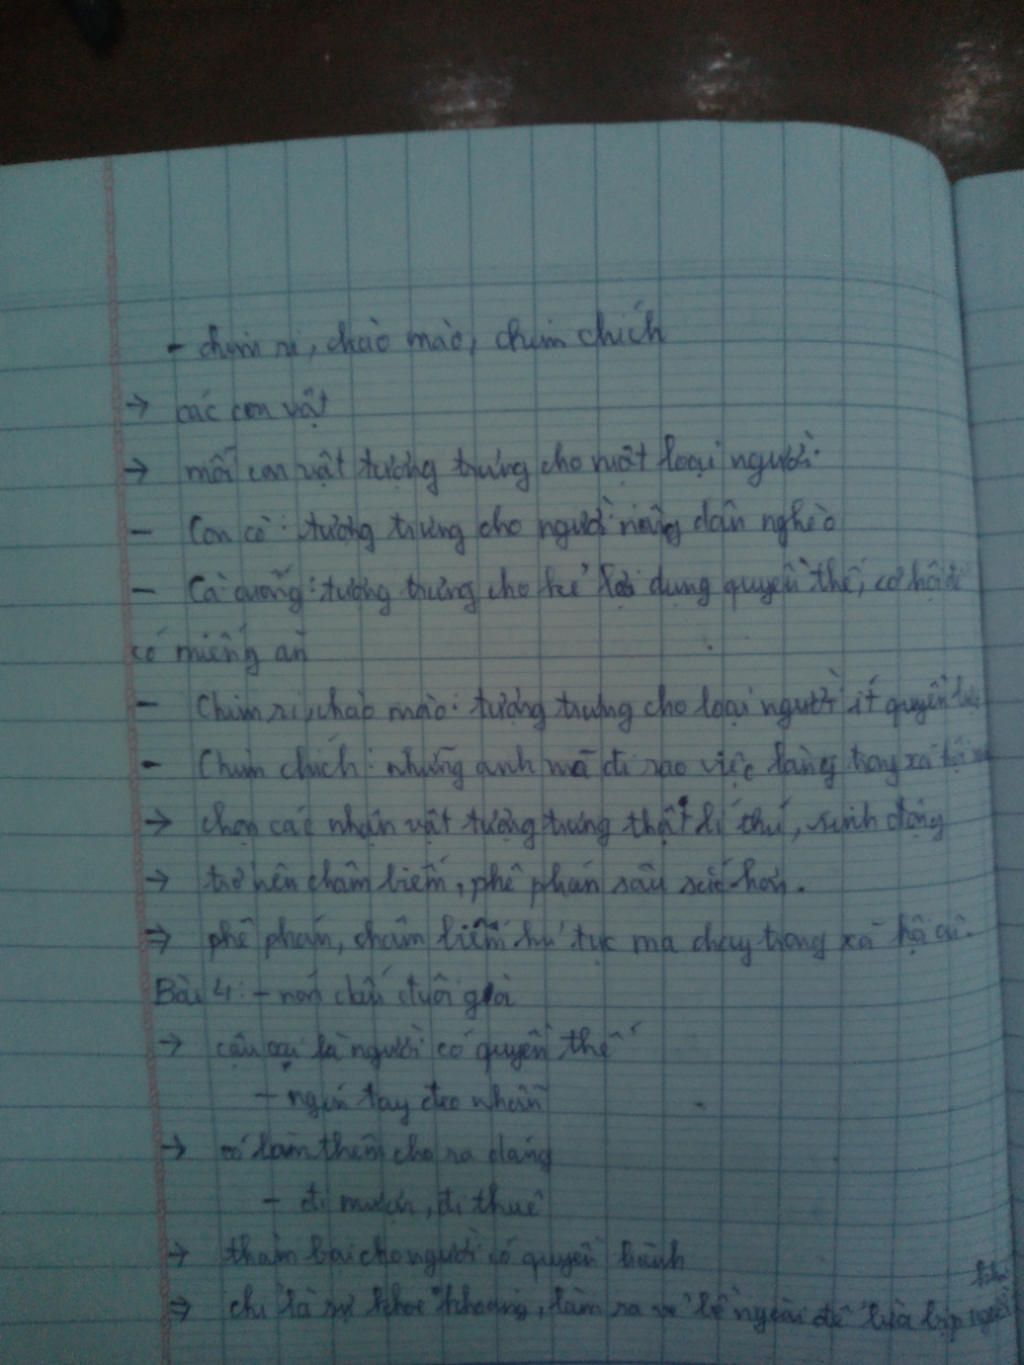 - chim ri, chào mào, chim chích
→ các con vật
→ mỗi con vật tượng trưng cho một loại người.
- Con cò: tượng trưng cho người nông dân nghèo
- Cà cuống: tượng trưng cho kẻ lợi dụng quyền thế, cơ hội để
có miếng ăn
- Chim ri, chào mào: tượng trưng cho loại người ít quyền lực
- Chim chích: những anh mõ đi rao việc làng trong xã hội
→ chọn các nhân vật tượng trưng thật lí thú, sinh động
→ trở nên châm biếm, phê phán sâu sắc hơn.
⇒ phê phán, châm biếm hủ tục ma chay trong xã hội cũ.
Bài 4: - nón dấu đuôi gà
→ cậu cai là người có quyền thế
- ngón tay đeo nhẫn
→ cố làm thêm cho ra dáng
- đi mượn, đi thuê
→ thảm hại cho người có quyền hành
⇒ chỉ là sự khoe khoang, làm ra vẻ bề ngoài để lừa bịp người